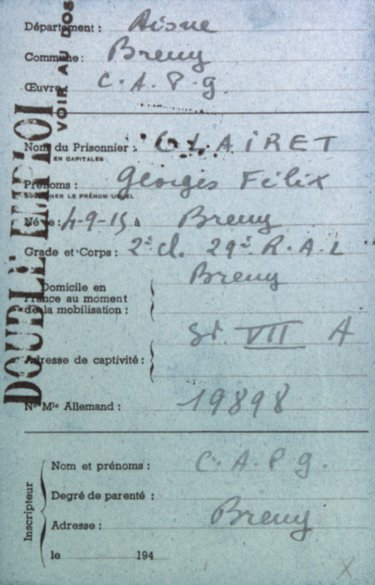 Département : Aisne
Commune : Breny
Œuvre C.A.P.g.
Nom du Prisonnier : CLAIRET
EN CAPITALES
Prénoms : Georges Félix
SOULIGNER LE PRÉNOM USUEL
Né le : 4-9-15 à Breny
Grade et Corps : 2e cl. 29e R.A.L
Domicile en Breny
France au moment
de la mobilisation :
St. VII A
Adresse de captivité :
No Mle Allemand : 19898
Nom et prénoms : C.A.P.g.
Degré de parenté :
Adresse : Breny
le 194
Inscripteur
DOUBLE EMPLOI
VOIR AU DOS
X